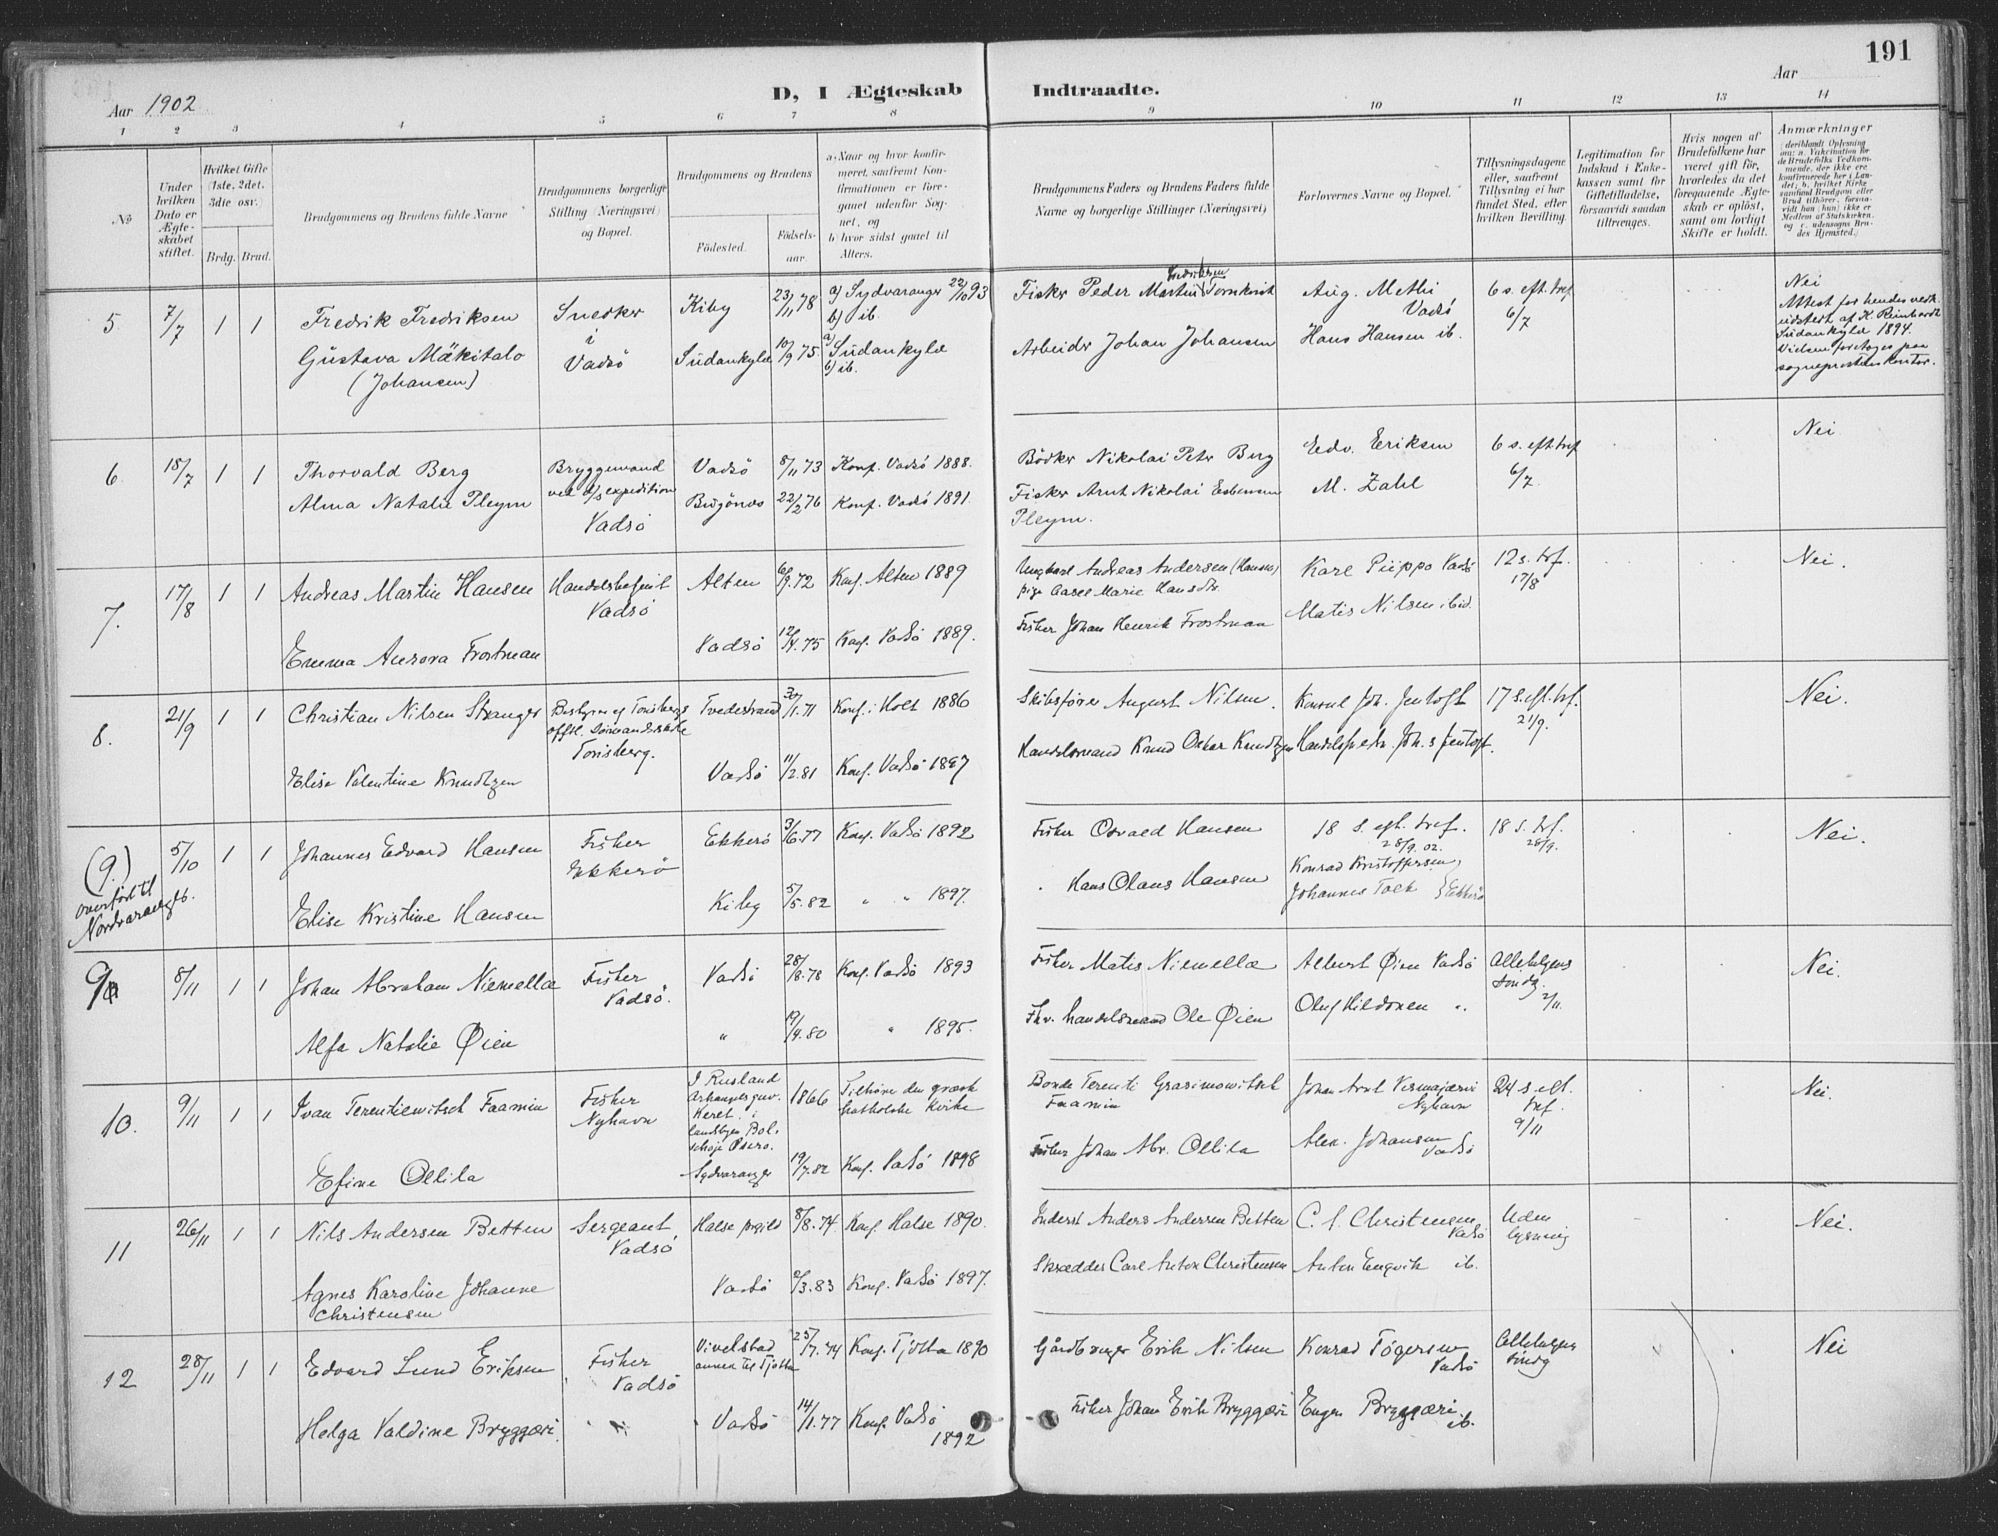 191
Aar 1902
D, I Ægteskab Indtraadte.
Aar
1 2 3 4 5 6 7 8 9 10 11 12 13 14
No
Under hvilken Dato er Ægteskabet stiftet.
Hvilket Gifte (1ste, 2det, 3die osv.)
Brdg. Brud.
Brudgommens og Brudens fulde Navne
Brudgommens borgerlige Stilling (Næringsvei) og Bopæl.
Brudgommens og Brudens
Födested.
Födselsaar.
a. Naar og hvor konfirmeret, saafremt Konfirmationen er foregaaet udenfor Sognet, og
b. hvor sidst gaaet til Alters.
Brudgommens Faders og Brudens Faders fulde Navne og borgerlige Stillinger (Næringsvei)
Forlovernes Navne og Bopæl.
Tillysningsdagene eller, saafremt Tillysning ei har fundet Sted, efter hvilken Bevilling.
Legitimation for Indskud i Enkekassen samt for Giftetilladelse, forsaavidt saadan tiltrænges.
Hvis nogen af Brudefolkene har været gift för, hvorledes da det foregaaende Ægteskab er oplöst, samt om lovligt Skifte er holdt.
Anmærkninger
(deriblandt Oplysning om: a. Vakcination for de Brudefolks Vedkommende, der ikke ere konfirmerede her i Landet; b. hvilket Kirkesamfund Brudgom eller Brud tilhörer, forsaavidt han (hun) ikke er Medlem af Statskirken, og c. udensogns Brudes Hjemsted.)
5 7/7 1 1 Fredrik Fredriksen Snedker i Vadsö Kiby 23/11 78 a) Sydvaranger 22/10 93 b) ib.
Fisker Peder Martin Fredriksen Aug. Methi Vadsö 6 s. eft. tref 6/7 Nei
Gustava Mäkitalo (Johansen) Sudankyla 10/9 75. a) Sudankyla b) ib.
Arbeider Johan Johansen Hans Hansen ib.
Attest for hendes
Sudankyla 1894.
6. 18/7 1 1 Thorvald Berg Bryggemand ved d/s expedition Vadsö Vadsö 8/11 73 Konf. Vadsö 1888.
Bödker Nikolai Peter Berg Edv. Eriksen 6 s. eft. tref 6/7 Nei
Alma Natalie Pleym Bugönæs 22/2 76 Konf. Vadsö 1891.
Fisker Arnt Nikolai Esbensen Pleym. M. Zahl
7. 17/8 1 1 Andreas Martin Hansen Handelsbetjent Vadsö Alten 6/9.72 Konf. Alten 1889
Ungkarl Andreas Andersen (Hansen) pige Marie Hansdtr. Karl Piippo Vadsö 12 s. tref. 17/8 Nei.
Emma Aurora Frostman Vadsö 12/4.75 Konf. Vadsö 1889.
Fisker Johan Henrik Frostman Matis Nilsen ibid.
8. 21/9 1 1 Christian Nilsen Stranger Bestyrer af Tönsbergs offtl. Sömandsskole Tönsberg. Tvedestrand 30/1.71 Konf. i Holt 1886
Skibsförer August Nilsen. Konsul Joh. Jentoft 17 s. eft. tref. 21/9. Nei.
Elise Valentine Knudtzen Vadsö 11/2.81 Konf. Vadsö 1897
Handelsmand Knud Oskar Knudtzen Joh. S. Jentoft.
(9.) overfört til Nordvaranger 5/10 1 1 Johannes Edvard Hansen Fisker Ekkerö Ekkerö 3/6.77 Konf. Vadsö 1892
Fisker Osvald Hansen 18 s. eft. tref. 28/9.02. 18 s. tref. 28/9. Nei.
Konrad Kristoffersen, Johannes Falk } Ekkerö
Elise Kristine Hansen Kiby 5/5.82 " " 1897.
" Hans Olaus Hansen
9 8/11 1 1 Johan Abraham Niemella Fisker Vadsö. Vadsö 28/8.78 Konf. Vadsö 1893
Fisker Matis Niemella Albert Øien Vadsö Allehelgens söndg. 2/11 Nei.
Alfa Natalie Øien " 19/9.80 " 1895.
Fhv. handelsmand Ole Øien Oluf Hildonen "
10. 9/11 1 1 Ivan Terentiewitsch Faamin Fisker Nyhavn I Rusland Arkangelsguv. Keret. i landsbyen Bolschoje Osero. 1866 Tilhörer den græsk katholske kirke
Bonde Terenti Grasimowitsch Faamin Johan Arnt Vesmajærvi Nyhavn 24 s eft. tref. 9/11 Nei.
Efine Ollila Sydvaranger 19/7.82 Konf. Vadsö 1898
Fisker Johan Abr. Ollila Alex. Johansen Vadsö
11 26/11 1 1 Nils Andersen Betten Sergeant Vadsö Halse prgjld 8/8.74 Konf. Halse 1890.
Inderst Anders Andersen Betten C. S. Christensen Vadsö Uden lysning Nei.
Agnes Karoline Johanne Christensen Vadsö /3.83 Konf. Vadsö 1897.
Skrædder Carl Anton Christensen Anton Engvik ib.
12 28/11 1 1 Edvard Lund Eriksen Fisker Vadsö Vivelstad annex til Tjötta 25/7.74 Konf. Tjötta 1890
Gårdbruger Erik Nilsen Konrad Tögersen Vadsö Allehelgens söndg Nei
Helga Valdine Bryggæri. Vadsö 14/1.77 Konf. Vadsö 1892
Fisker Johan Erik Bryggæri Eugen Bryggæri ib.